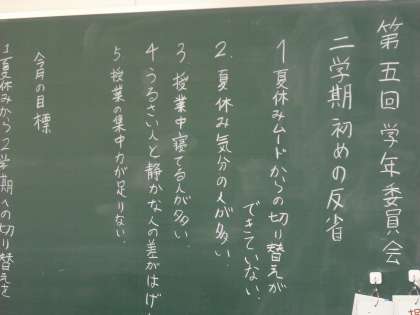 第五回 学年委員会
二学期初めの反省
1 夏休みムードからの切り替えが
できていない.
2. 夏休み気分の人が多い.
3. 授業中寝てる人が多い.
4 うるさい人と静かな人の差がはげ
5 授業の集中力が足りない.
今月の目標
1 夏休みから2学期への切り替えを